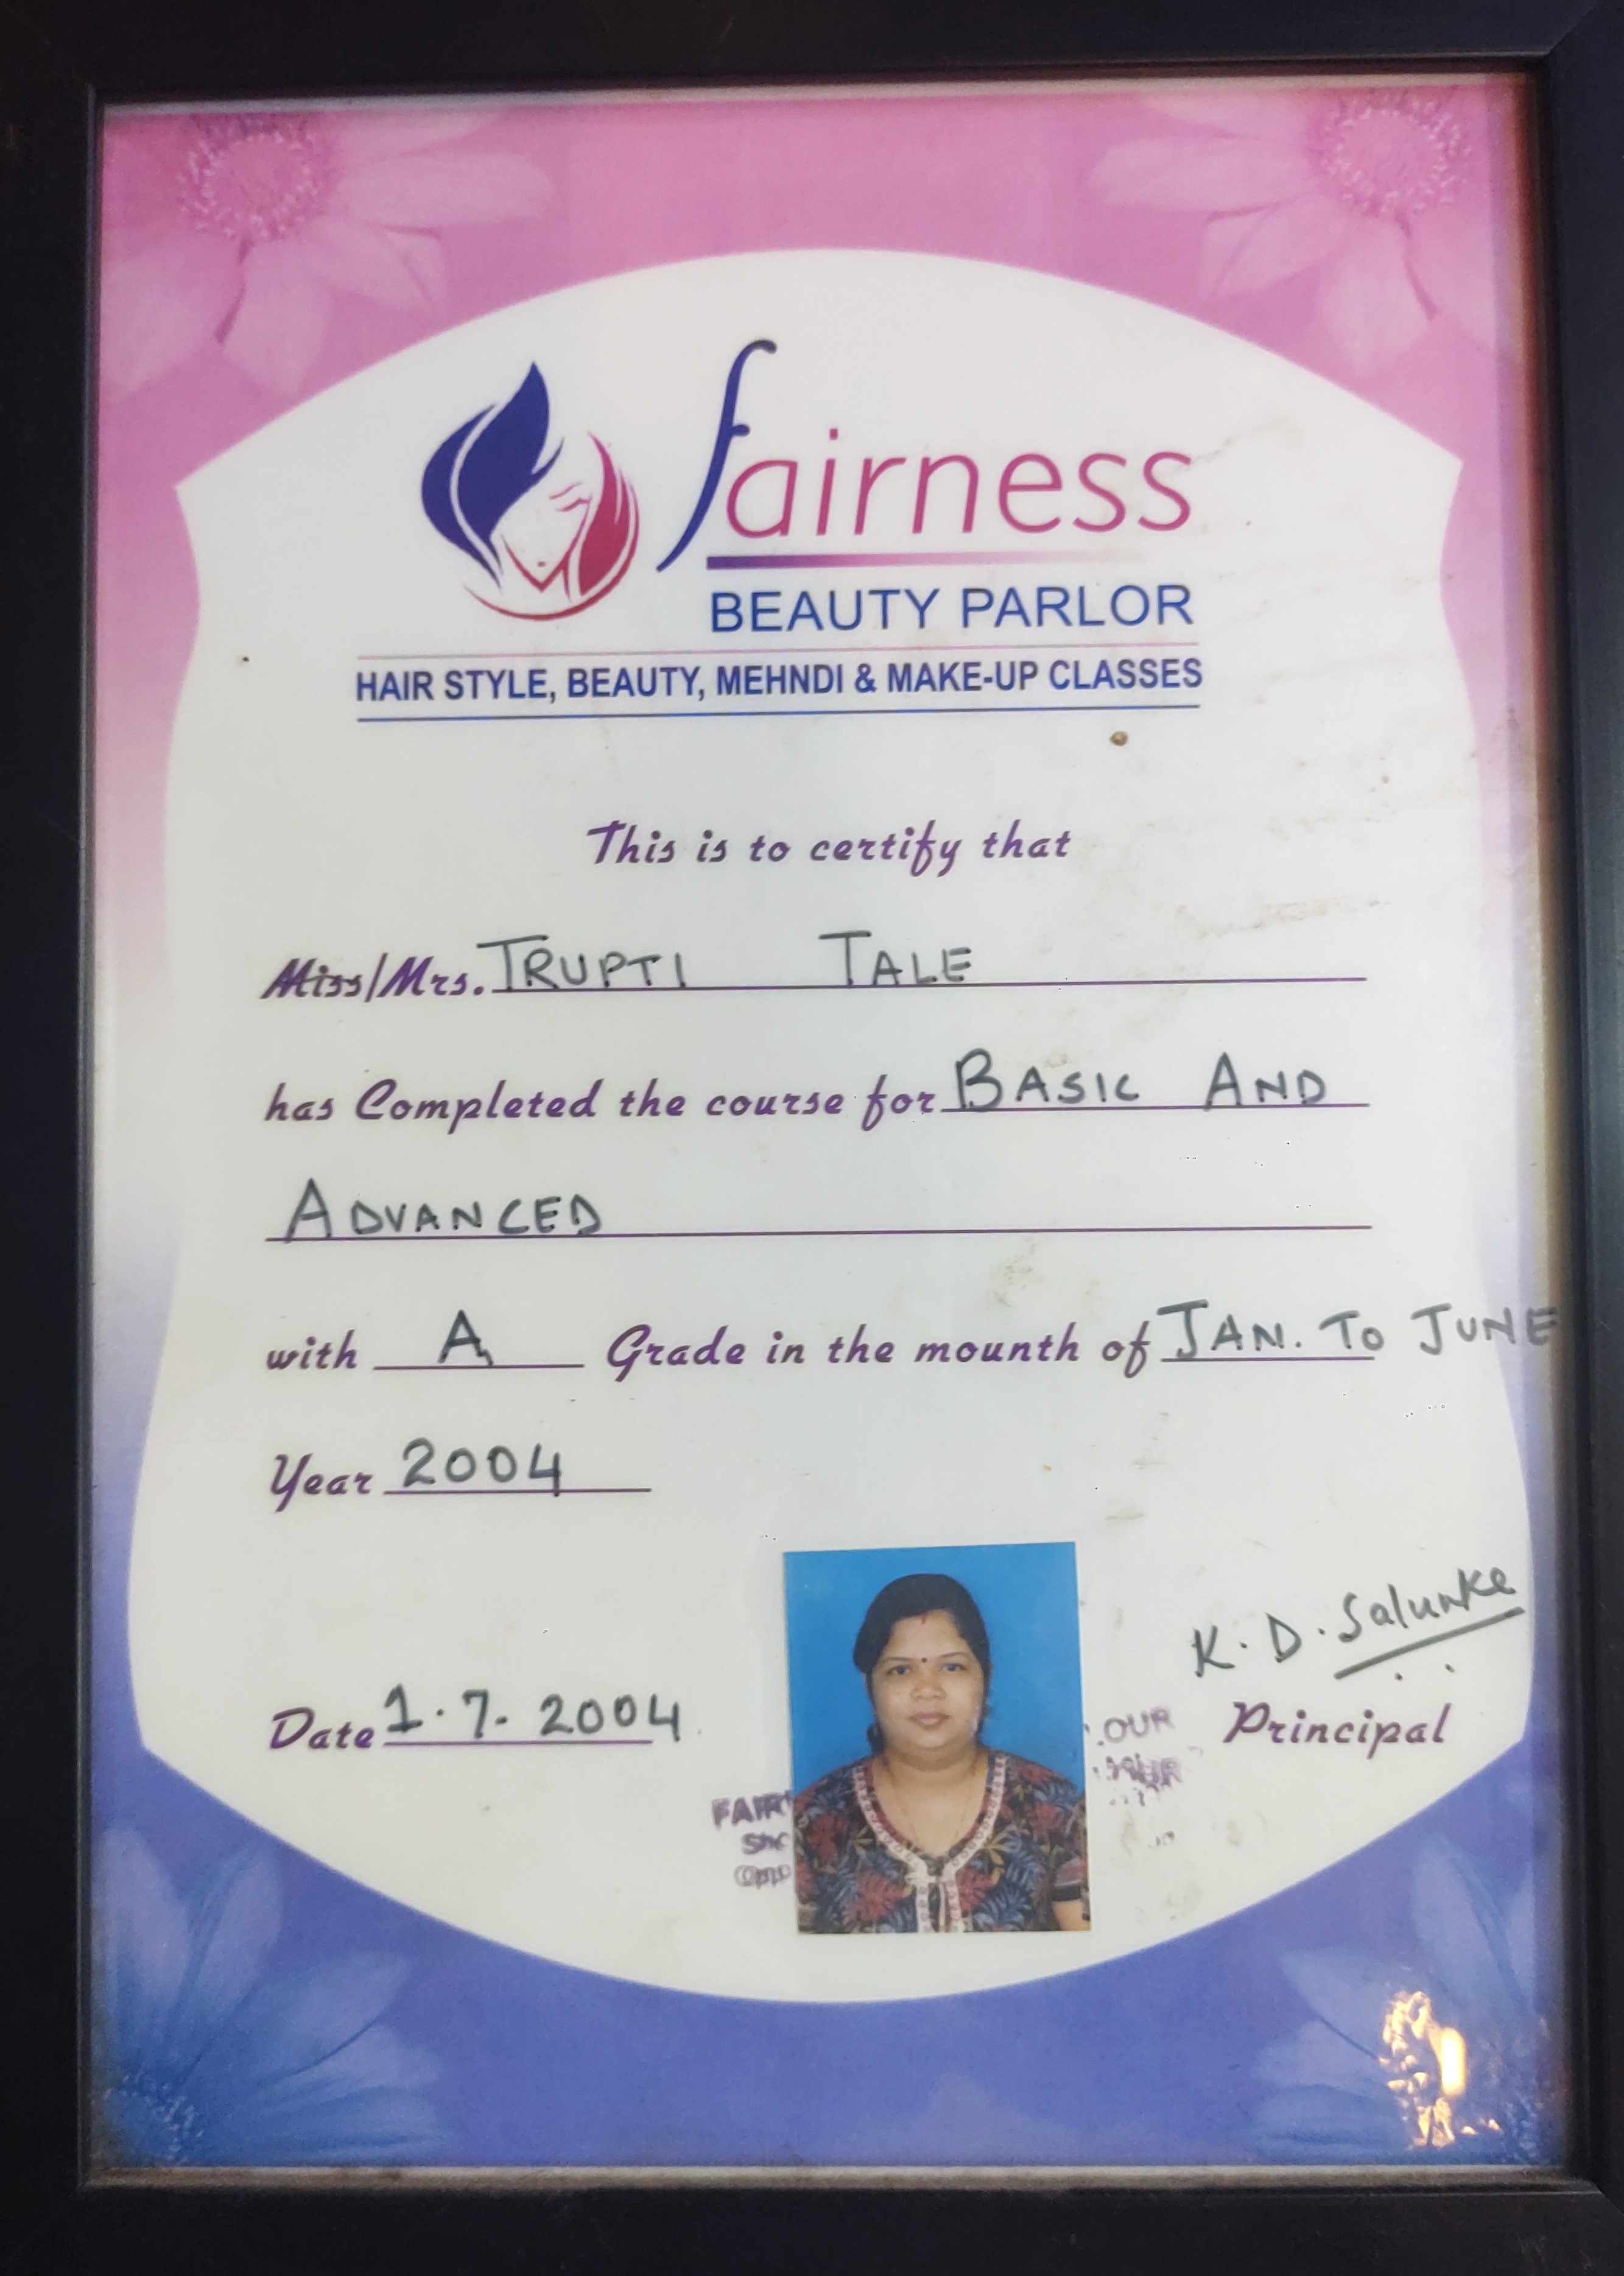 fairness
BEAUTY PARLOR
HAIR STYLE, BEAUTY, MEHNDI & MAKE-UP CLASSES
This is to certify that
Miss/Mrs. TRUPTI TALE
has Completed the course for BASIC AND
ADVANCED
with A Grade in the mounth of JAN. TO JUNE
Year 2004
K. D. Salunke
Date 1.7.2004
Principal